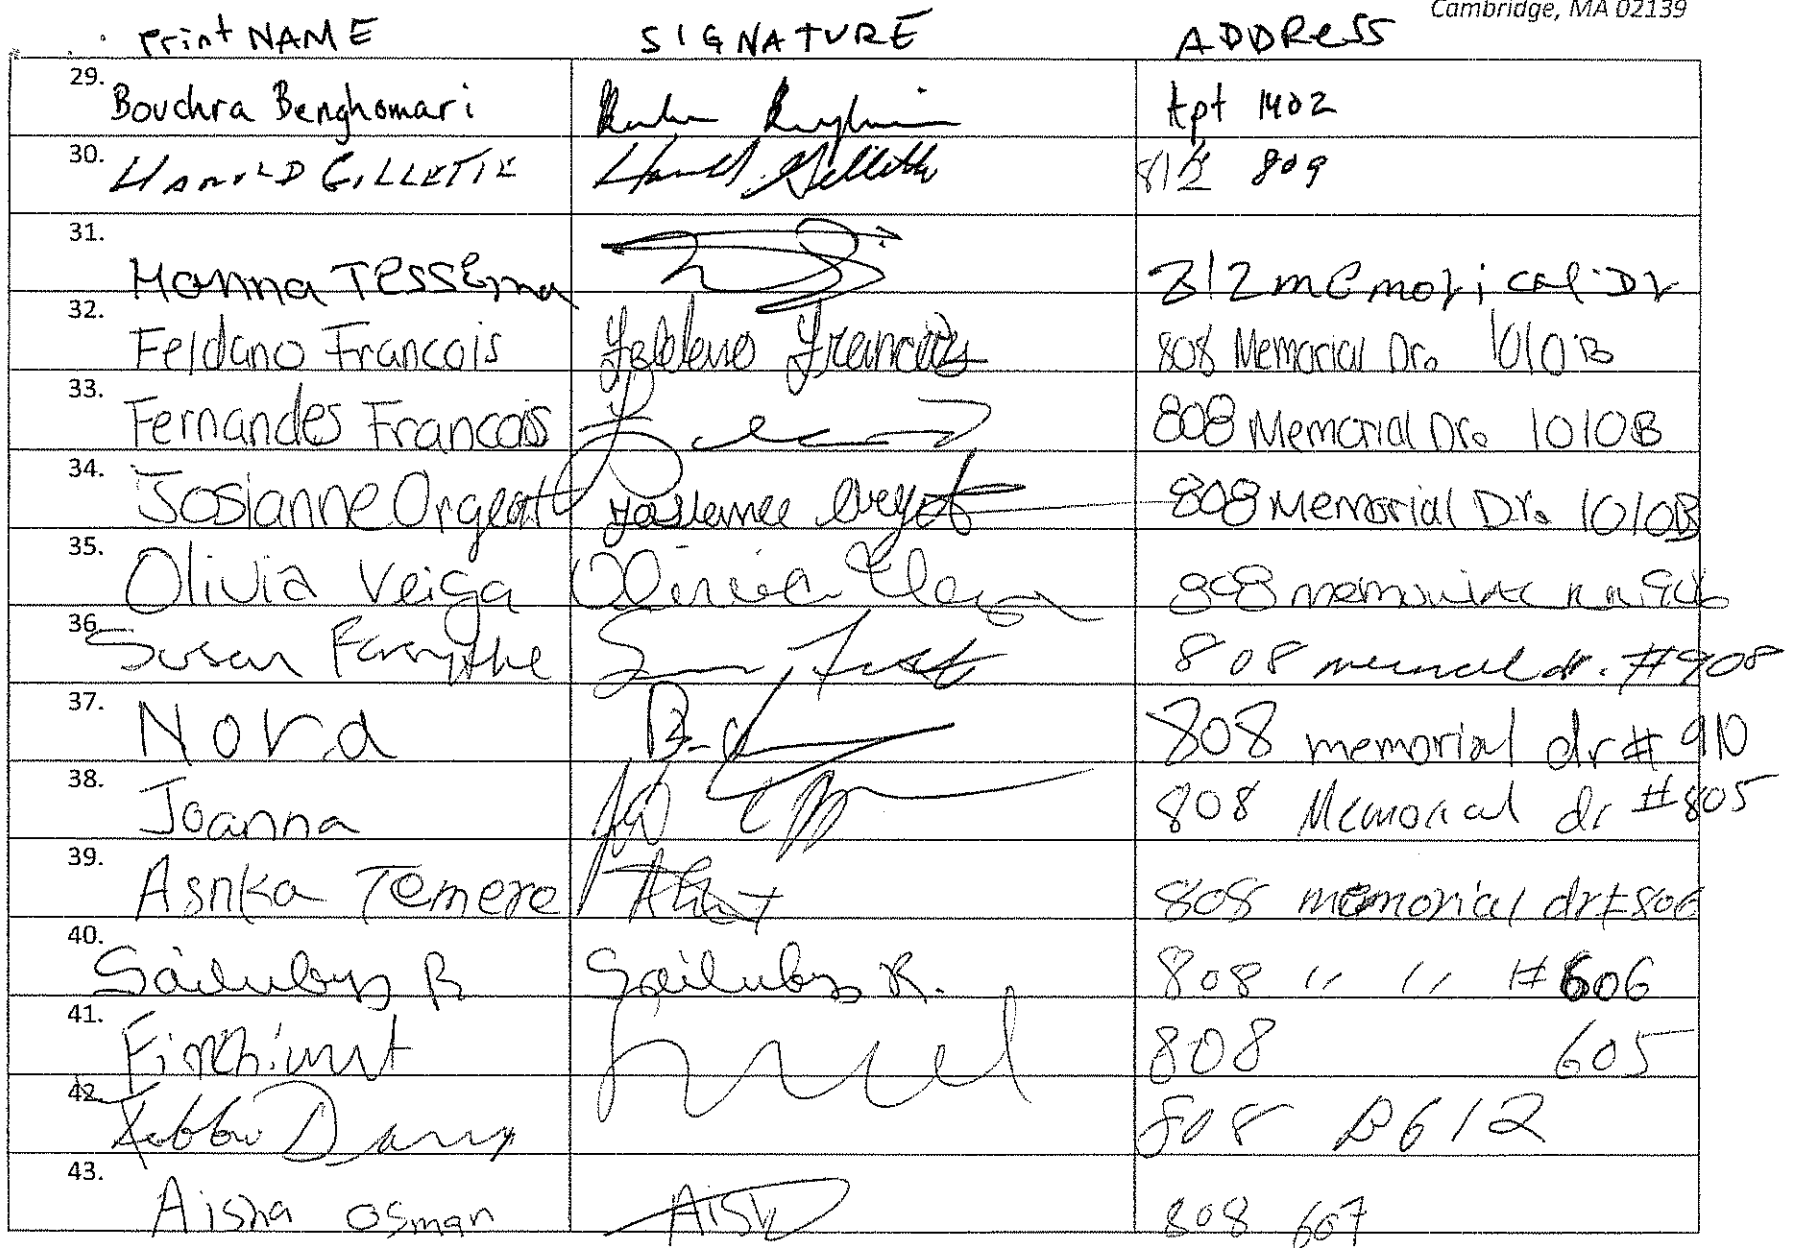 Cambridge, MA 02139
Print NAME SIGNATURE ADDRESS
29. Bouchra Benghomari Apt 1402
30. HAROLD GILLETTE Harold Gillette 812 809
31. Hanna TESSEma 812 mEmorical Dr
32. Feldano Francois Feldano Francois 808 Memorial Dr. 1010B
33. Fernandes Francois 808 Memorial Dr. 1010B
34. Josianne Orgeat 808 Memorial Dr. 1010B
35. Olivia Veiga Olivia Veiga 808
36. Susan Forsythe 808 memorial dr. #908
37. Nora 808 memorial dr # 910
38. Joanna 808 Memorial dr #805
39. Asnka Temere 808 memorial dr #806
40. Sailubys R Sailubys R. 808 " " #606
41. 808 605
42. 808 B612
43. Aisha osman Aish 808 607